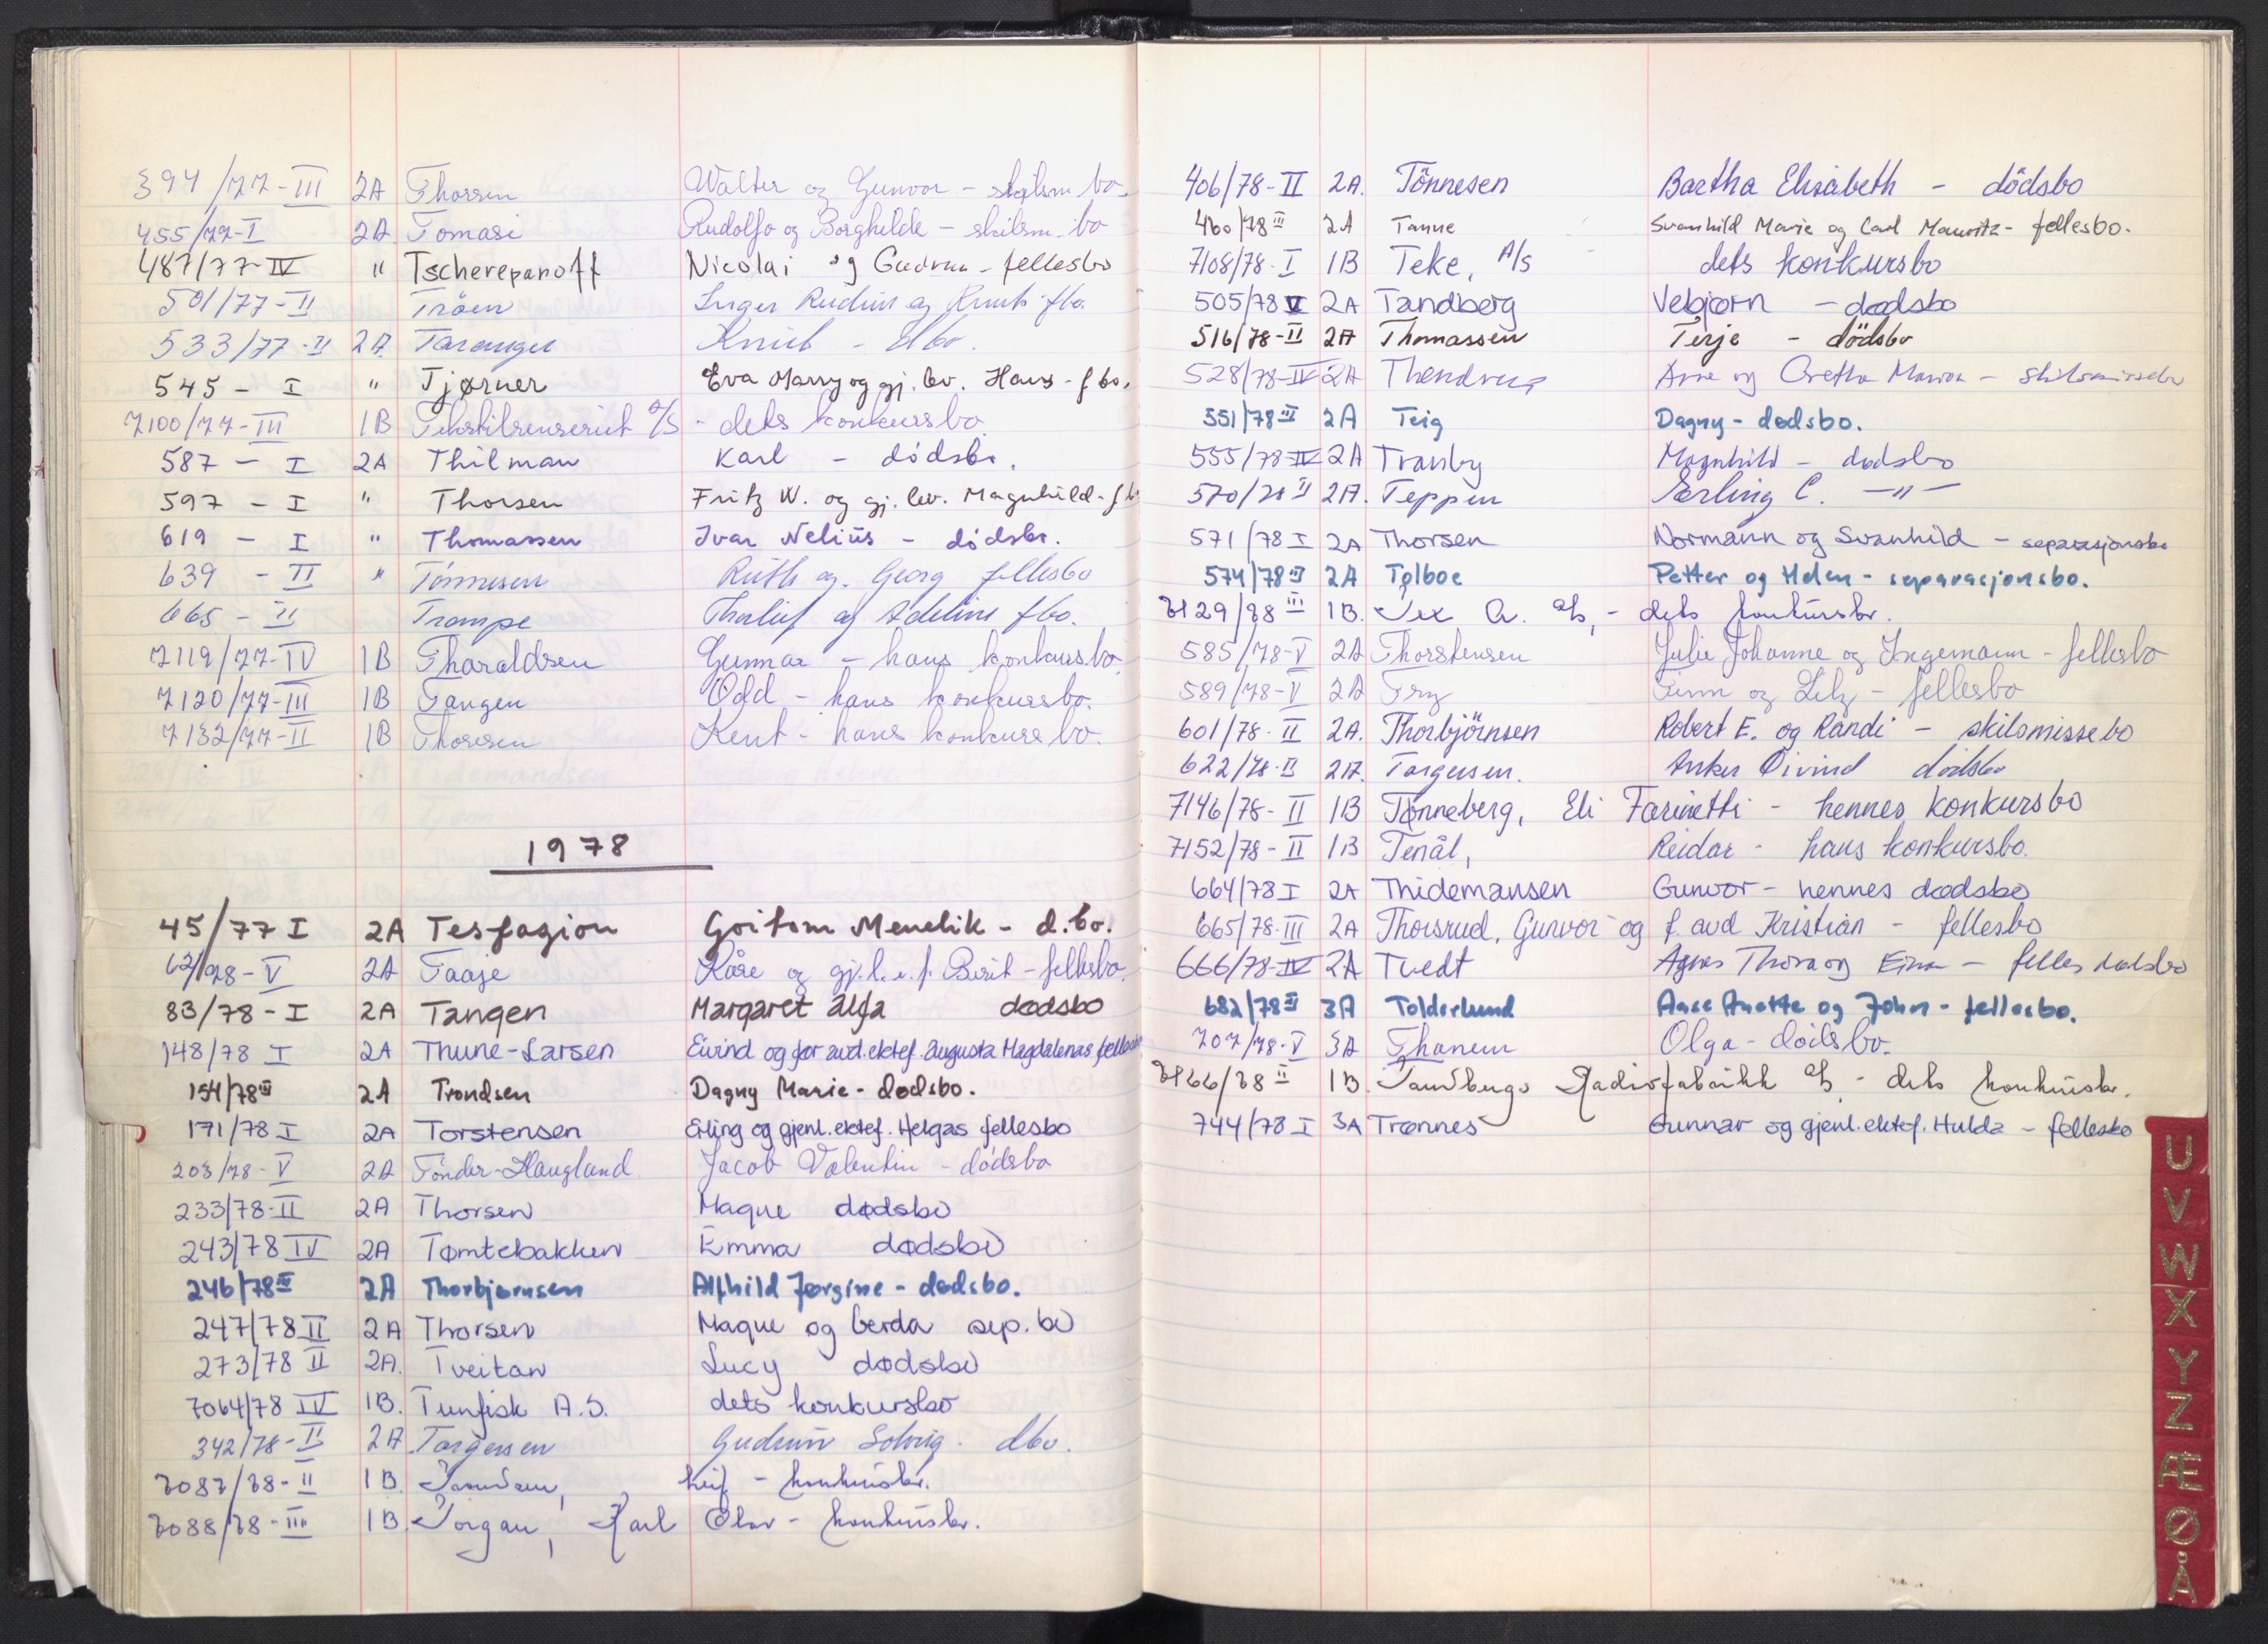 394/77-III 2A Thorsen Walter og Gunvor - skilsm. bo
455/77-I 2A Tomasi Rudolfo og Borghilde - skilsm. bo
487/77-IV " Tscherepanoff Nicolai og Gudrun - fellesbo
501/77-II Tråen Inger og Knut fbo.
533/77-II 2A Taranger Knut - dbo.
545 - I " Tjørner Eva Marry og gj. lev. Hans - fbo.
7100/77-III 1B a/s - dets konkursbo
587 - I 2A Thilman Karl - dödsbo.
597 - I " Thorsen Fritz W. og gj. lev. Magnhild - f
619 - I " Thomassen Ivar Nelius - dödsbo.
639 - II " Tönnesen Ruth og Georg fellesbo
665 - II Trampe Thorleif og Adeline fbo.
7119/77-IV 1B Tharaldsen Gunnar - hans konkursbo
7120/77-III 1B Tangen Odd - hans konkursbo.
7132/77-II 1B Thoresen Kent - hans konkursbo.
1978
45/77 I 2A Tesfagion Goitom Menelik - d.bo.
62/78-V 2A Taaje Kåre og gj.l.e.f. Berit - fellesbo.
83/78-I 2A Tangen Margaret Alfa dødsbo
148/78 I 2A Thune-Larsen Eivind og før avd. ektef. Augusta Magdalenas fellesbo
154/78 III 2A Trondsen Dagny Marie - dødsbo.
171/78 I 2A Torstensen Erling og gjenl. ektef. Helgas fellesbo
203/78-V 2A Tönder-Haugland Jacob Valentin - dödsbo
233/78-II 2A Thorsen Magne dødsbo
243/78 IV 2A Tømtebakken Emma dødsbo
246/78 III 2A Thorbjørnsen Alfhild Jørgine - dødsbo.
247/78 II 2A Thorsen Magne og Gerda sep. bo
273/78 II 2A. Tveitan Lucy dødsbo
7064/78 IV 1B. Tunfisk A.S. dets konkursbo
342/78-II 2A Torgersen Gudrun Solveig. dbo.
7087/78-II 1B. Leif - konkursbo.
7088/78-III 1B. Torgau, Karl Olav - konkursbo.
406/78-II 2A. Tönnesen Bartha Elisabeth - dödsbo
460/78 III 2A Tanne Svanhild Marie og Carl Mauritz - fellesbo.
7108/78-I 1B Teke, A/S dets konkursbo
505/78 V 2A Tandberg Vebjørn - dødsbo
516/78-II 2A Thomassen Terje - dödsbo
528/78-IV 2A Arne og Gretha Marion - skilsmissebo
551/78 III 2A Teig Dagny - dødsbo.
555/78-IV 2A Tranby Magnhild - dødsbo
570/78 II 2A. Teppen Erling C. -"-
571/78 I 2A Thorsen Normann og Svanhild - separasjonsbo
574/78 III 2A Tolboe Petter og Helen - separasjonsbo.
7129/78 III 1B. Tex A. a/s, - dets konkursbo.
585/78-V 2A Thorstensen Julie Johanne og Ingemann - fellesbo
589/78-V 2A Try Finn og - fellesbo
601/78-II 2A. Thorbjörnsen Robert E. og Randi - skilsmissebo
622/78-II 2A. Torgersen. Anker Öivind dödsbo
7146/78-II 1B Tønneberg, Eli Farinetti - hennes konkursbo
7152/78-II 1B Tenål, Reidar - hans konkursbo.
664/78 I 2A Thidemansen Gunvor - hennes dødsbo
665/78-III 2A Thorsrud, Gunvor og f. avd Kristian - fellesbo
666/78-IV 2A Tvedt Agnes Thora og Einar - felles dødsbo
682/78 III 3A Tolderlund Aase Anette og John - fellesbo.
707/78-V 3A Thanem Olga - dödsbo.
7166/78 II 1B. Tandbergs Radiofabrikk a/s - dets konkursbo.
744/78 I 3A Trønnes Gunnar og gjenl. ektef. Hulda - fellesbo
U
V
W
X
Y
Z
Æ
Ø
Å